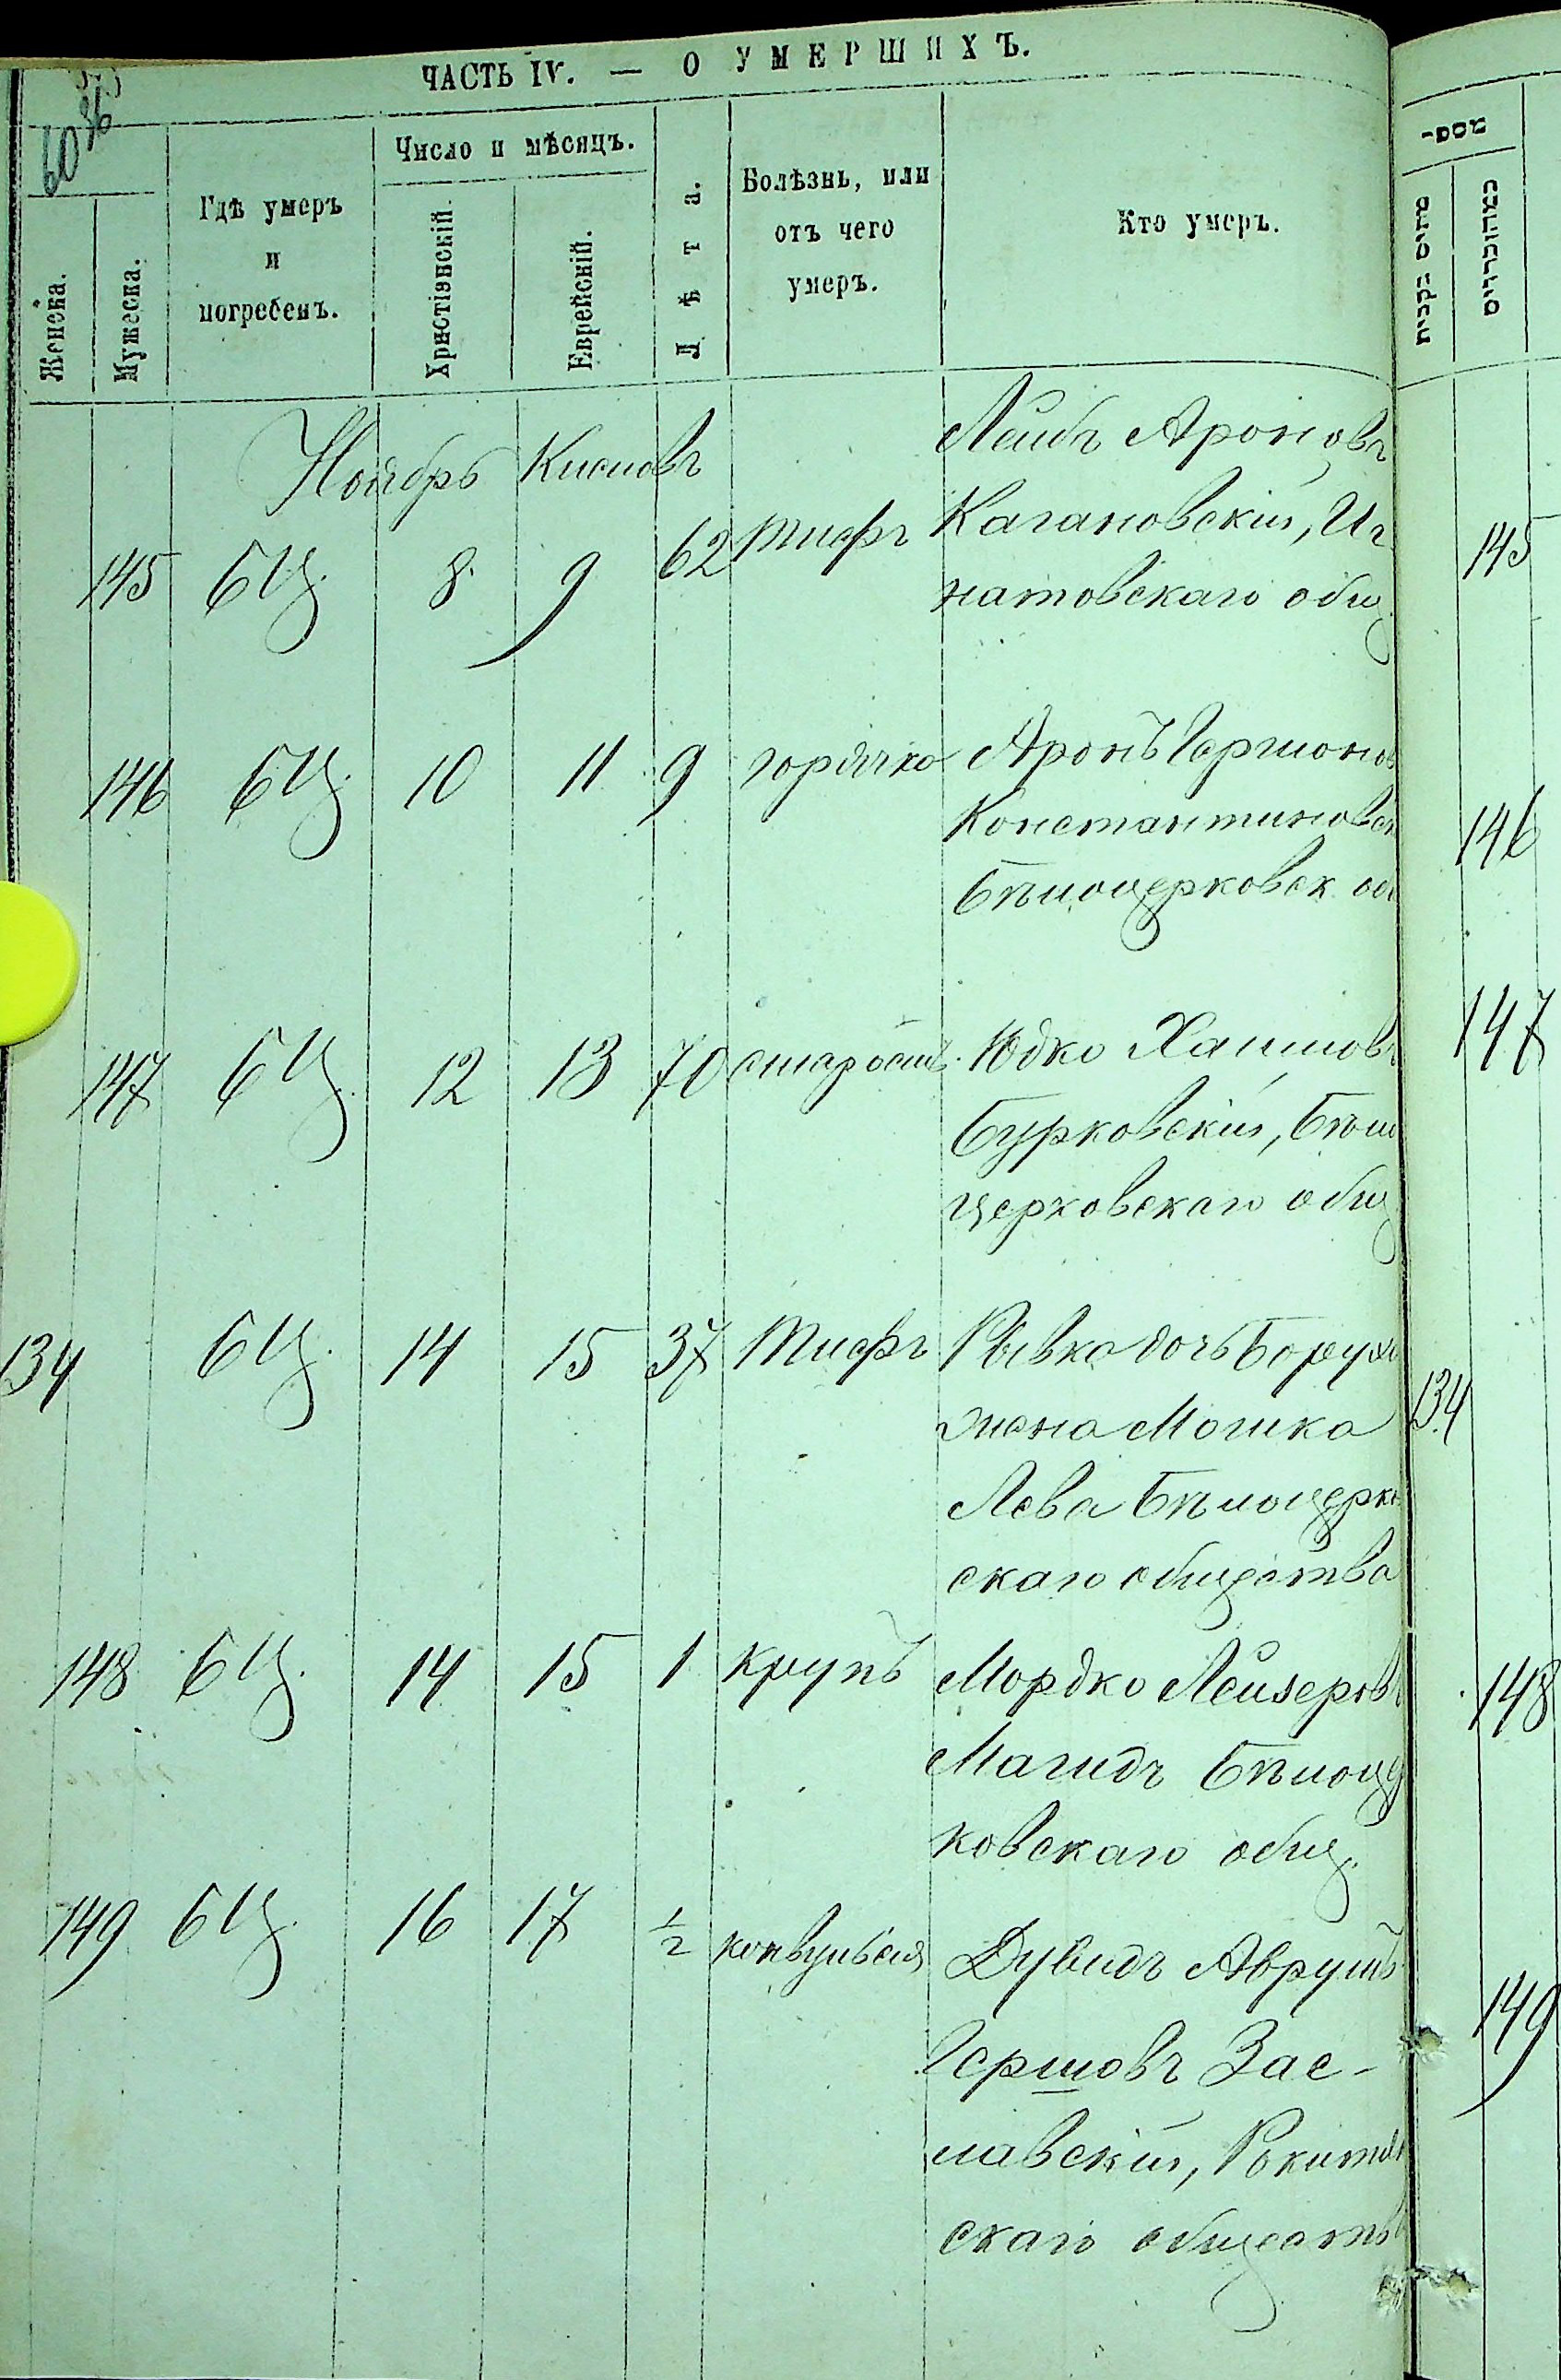 ЧАСТЬ IV. — О УМЕРШИХЪ.
60
Женска.
Мужеска.
Гдѣ умеръ
и
погребенъ.
Число и мѣсяцъ.
Христіянскій.
Еврейскій.
Лѣта.
Болѣзнь, или
отъ чего
умеръ.
Кто умеръ.
מספר
מהנוכריים
Ноябрь Кислевъ
145 БЦ. 8 9 62 Тифъ Лейбъ Ароновъ
Кагановскій, Иг
натовскаго общ
145
146 БЦ. 10 11 9 горячка Аронъ Гершонов
Константиновск
Бѣлоцерковск об
146
147 БЦ. 12 13 70 старость Юдко Хаимовъ
Бурковскій, Бѣло
церковскаго общ
147
134 БЦ. 14 15 37 Тифъ Рывка дочь Борух
жена Мошка
Лева Бѣлоцерко
скаго общества
134
148 БЦ. 14 15 1 крупъ Мордко Лейзеровъ
Магидъ Бѣлоце
ковскаго общ.
148
149 БЦ. 16 17 1/2 конвульсія Дувидъ Аврумъ
Гершовъ Зас-
лавскій, Рокитян
скаго обществ
149